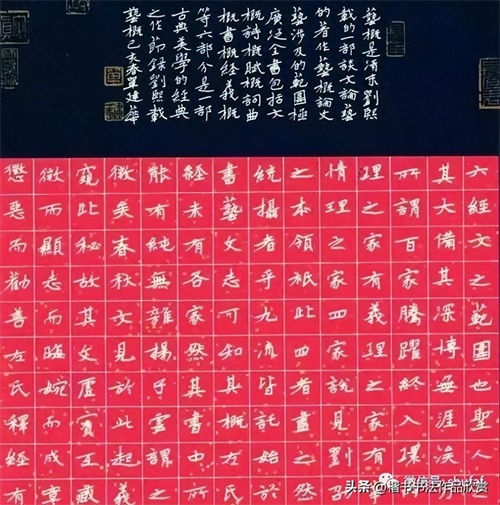 藝概是清末劉熙
載的一部談文論藝
的著作藝概論文
藝涉及的範圍極
廣泛全書包括文
概詩概賦概詞曲
概書概經義概
等六部分是一部
古典美學的經典
之作節錄劉熙載
藝概己亥春單建華
六經文之範圍也聖人之
其大備其深博無涯涘
所謂百家騰躍終入環
理之家有義理之家有
情理之家四家說見劉
之本領祇此四者盡之然
統攝者乎九流皆託始
書藝文志可知其概左氏
經未有各家然其書中所
能有純無雜楊子雲謂之
微矣春秋文見於此起義
窺此秘故其文虛實互藏
微而顯志而晦婉而成章
懲惡而勸善左氏釋經有
头条 @楷书书法作品欣赏